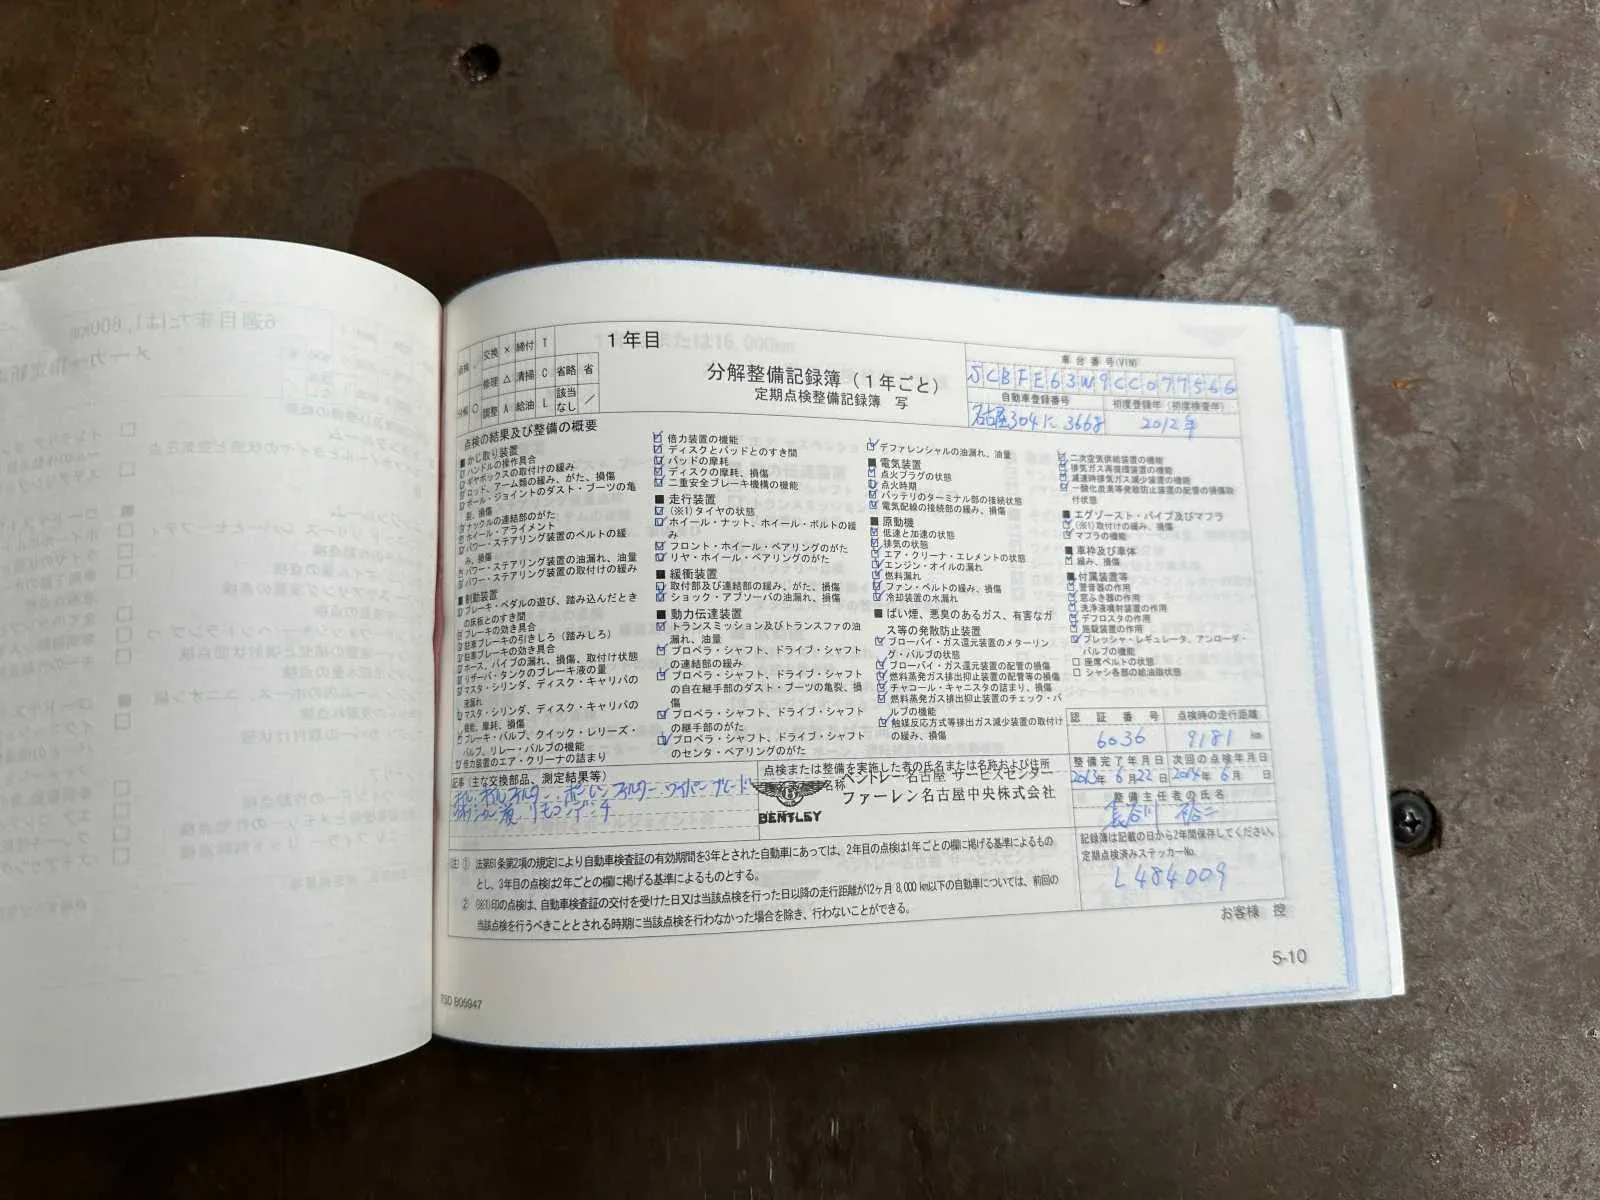 点検
交換 × 締付 T
修理 △ 清掃 C 省略 省
分解 ○ 調整 A 給油 L 該当なし ／
1年目
分解整備記録簿（1年ごと）
定期点検整備記録簿 写
車台番号(VIN)
SCBFE63W9CC077566
自動車登録番号 初度登録年（初度検査年）
名古屋304に3668 2012年
点検の結果及び整備の概要
■かじ取り装置
ハンドルの操作具合
ギヤボックスの取付けの緩み
ロッド、アーム類の緩み、がた、損傷
ボール・ジョイントのダスト・ブーツの亀
裂、損傷
ナックルの連結部のがた
ホイール・アライメント
パワー・ステアリング装置のベルトの緩
み、損傷
パワー・ステアリング装置の油漏れ、油量
パワー・ステアリング装置の取付けの緩み
■制動装置
ブレーキ・ペダルの遊び、踏み込んだとき
の床板とのすき間
ブレーキの効き具合
駐車ブレーキの引きしろ（踏みしろ）
駐車ブレーキの効き具合
ホース、パイプの漏れ、損傷、取付け状態
リザーバ・タンクのブレーキ液の量
マスタ・シリンダ、ディスク・キャリパの
液漏れ
マスタ・シリンダ、ディスク・キャリパの
機能、摩耗、損傷
ブレーキ・バルブ、クイック・レリーズ・
バルブ、リレー・バルブの機能
倍力装置のエア・クリーナの詰まり
倍力装置の機能
ディスクとパッドとのすき間
パッドの摩耗
ディスクの摩耗、損傷
二重安全ブレーキ機構の機能
■走行装置
(※1)タイヤの状態
ホイール・ナット、ホイール・ボルトの緩
み
フロント・ホイール・ベアリングのがた
リヤ・ホイール・ベアリングのがた
■緩衝装置
取付部及び連結部の緩み、がた、損傷
ショック・アブソーバの油漏れ、損傷
■動力伝達装置
トランスミッション及びトランスファの油
漏れ、油量
プロペラ・シャフト、ドライブ・シャフト
の連結部の緩み
プロペラ・シャフト、ドライブ・シャフト
の自在継手部のダスト・ブーツの亀裂、損
傷
プロペラ・シャフト、ドライブ・シャフト
の継手部のがた
プロペラ・シャフト、ドライブ・シャフト
のセンタ・ベアリングのがた
デファレンシャルの油漏れ、油量
■電気装置
点火プラグの状態
点火時期
バッテリのターミナル部の接続状態
電気配線の接続部の緩み、損傷
■原動機
低速と加速の状態
排気の状態
エア・クリーナ・エレメントの状態
エンジン・オイルの漏れ
燃料漏れ
ファン・ベルトの緩み、損傷
冷却装置の水漏れ
■ばい煙、悪臭のあるガス、有害なガ
ス等の発散防止装置
ブローバイ・ガス還元装置のメターリン
グ・バルブの状態
ブローバイ・ガス還元装置の配管の損傷
燃料蒸発ガス排出抑止装置の配管等の損傷
チャコール・キャニスタの詰まり、損傷
燃料蒸発ガス排出抑止装置のチェック・バ
ルブの機能
触媒反応方式等排出ガス減少装置の取付け
の緩み、損傷
二次空気供給装置の機能
排気ガス再循環装置の機能
減速時排気ガス減少装置の機能
一酸化炭素等発散防止装置の配管の損傷取
付状態
■エグゾースト・パイプ及びマフラ
(※1)取付けの緩み、損傷
マフラの機能
■車枠及び車体
緩み、損傷
■付属装置等
警音器の作用
窓ふき器の作用
洗浄液噴射装置の作用
デフロスタの作用
施錠装置の作用
プレッシャ・レギュレータ、アンローダ・
バルブの機能
□座席ベルトの状態
□シャシ各部の給油脂状態
認証番号 点検時の走行距離
6036 9181 km
整備完了年月日 次回の点検年月日
2013年6月22日 2014年6月 日
整備主任者の氏名
長谷川
記録簿は記載の日から2年間保存してください。
定期点検済みステッカーNo.
L484009
記事（主な交換部品、測定結果等）
オイル、オイルフィルター、ポーレンフィルター、ワイパーブレード
点検または整備を実施した者の氏名または名称および住所
名称
ベントレー名古屋 サービスセンター
ファーレン名古屋中央株式会社
BENTLEY
注）① 法第61条第2項の規定により自動車検査証の有効期間を3年とされた自動車にあっては、2年目の点検は1年ごとの欄に掲げる基準によるもの
とし、3年目の点検は2年ごとの欄に掲げる基準によるものとする。
② (※1)印の点検は、自動車検査証の交付を受けた日又は当該点検を行った日以降の走行距離が12ヶ月 8,000km以下の自動車については、前回の
当該点検を行うべきこととされる時期に当該点検を行わなかった場合を除き、行わないことができる。
お客様 控
5-10
TSD B05947